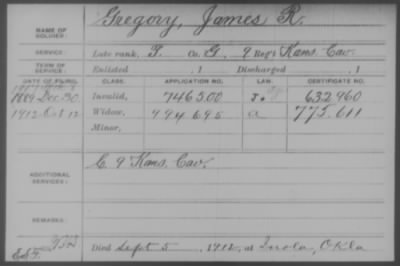 NAME OF SOLDIER: Gregory, James R.
SERVICE: Late rank, P. Co. G, 9 Reg't Kans. Cav.
TERM OF SERVICE: Enlisted , 1 Discharged , 1
DATE OF FILING. CLASS. APPLICATION NO. LAW. CERTIFICATE NO.
1889 Dec. 30 Invalid, 746500 J. 632960
1912 Oct 12 Widow, 994695 a 775.611
Minor,
ADDITIONAL SERVICES: C. 9 Kans. Cav.
REMARKS:
Died Sept 5, 1912, at Inola, Okla